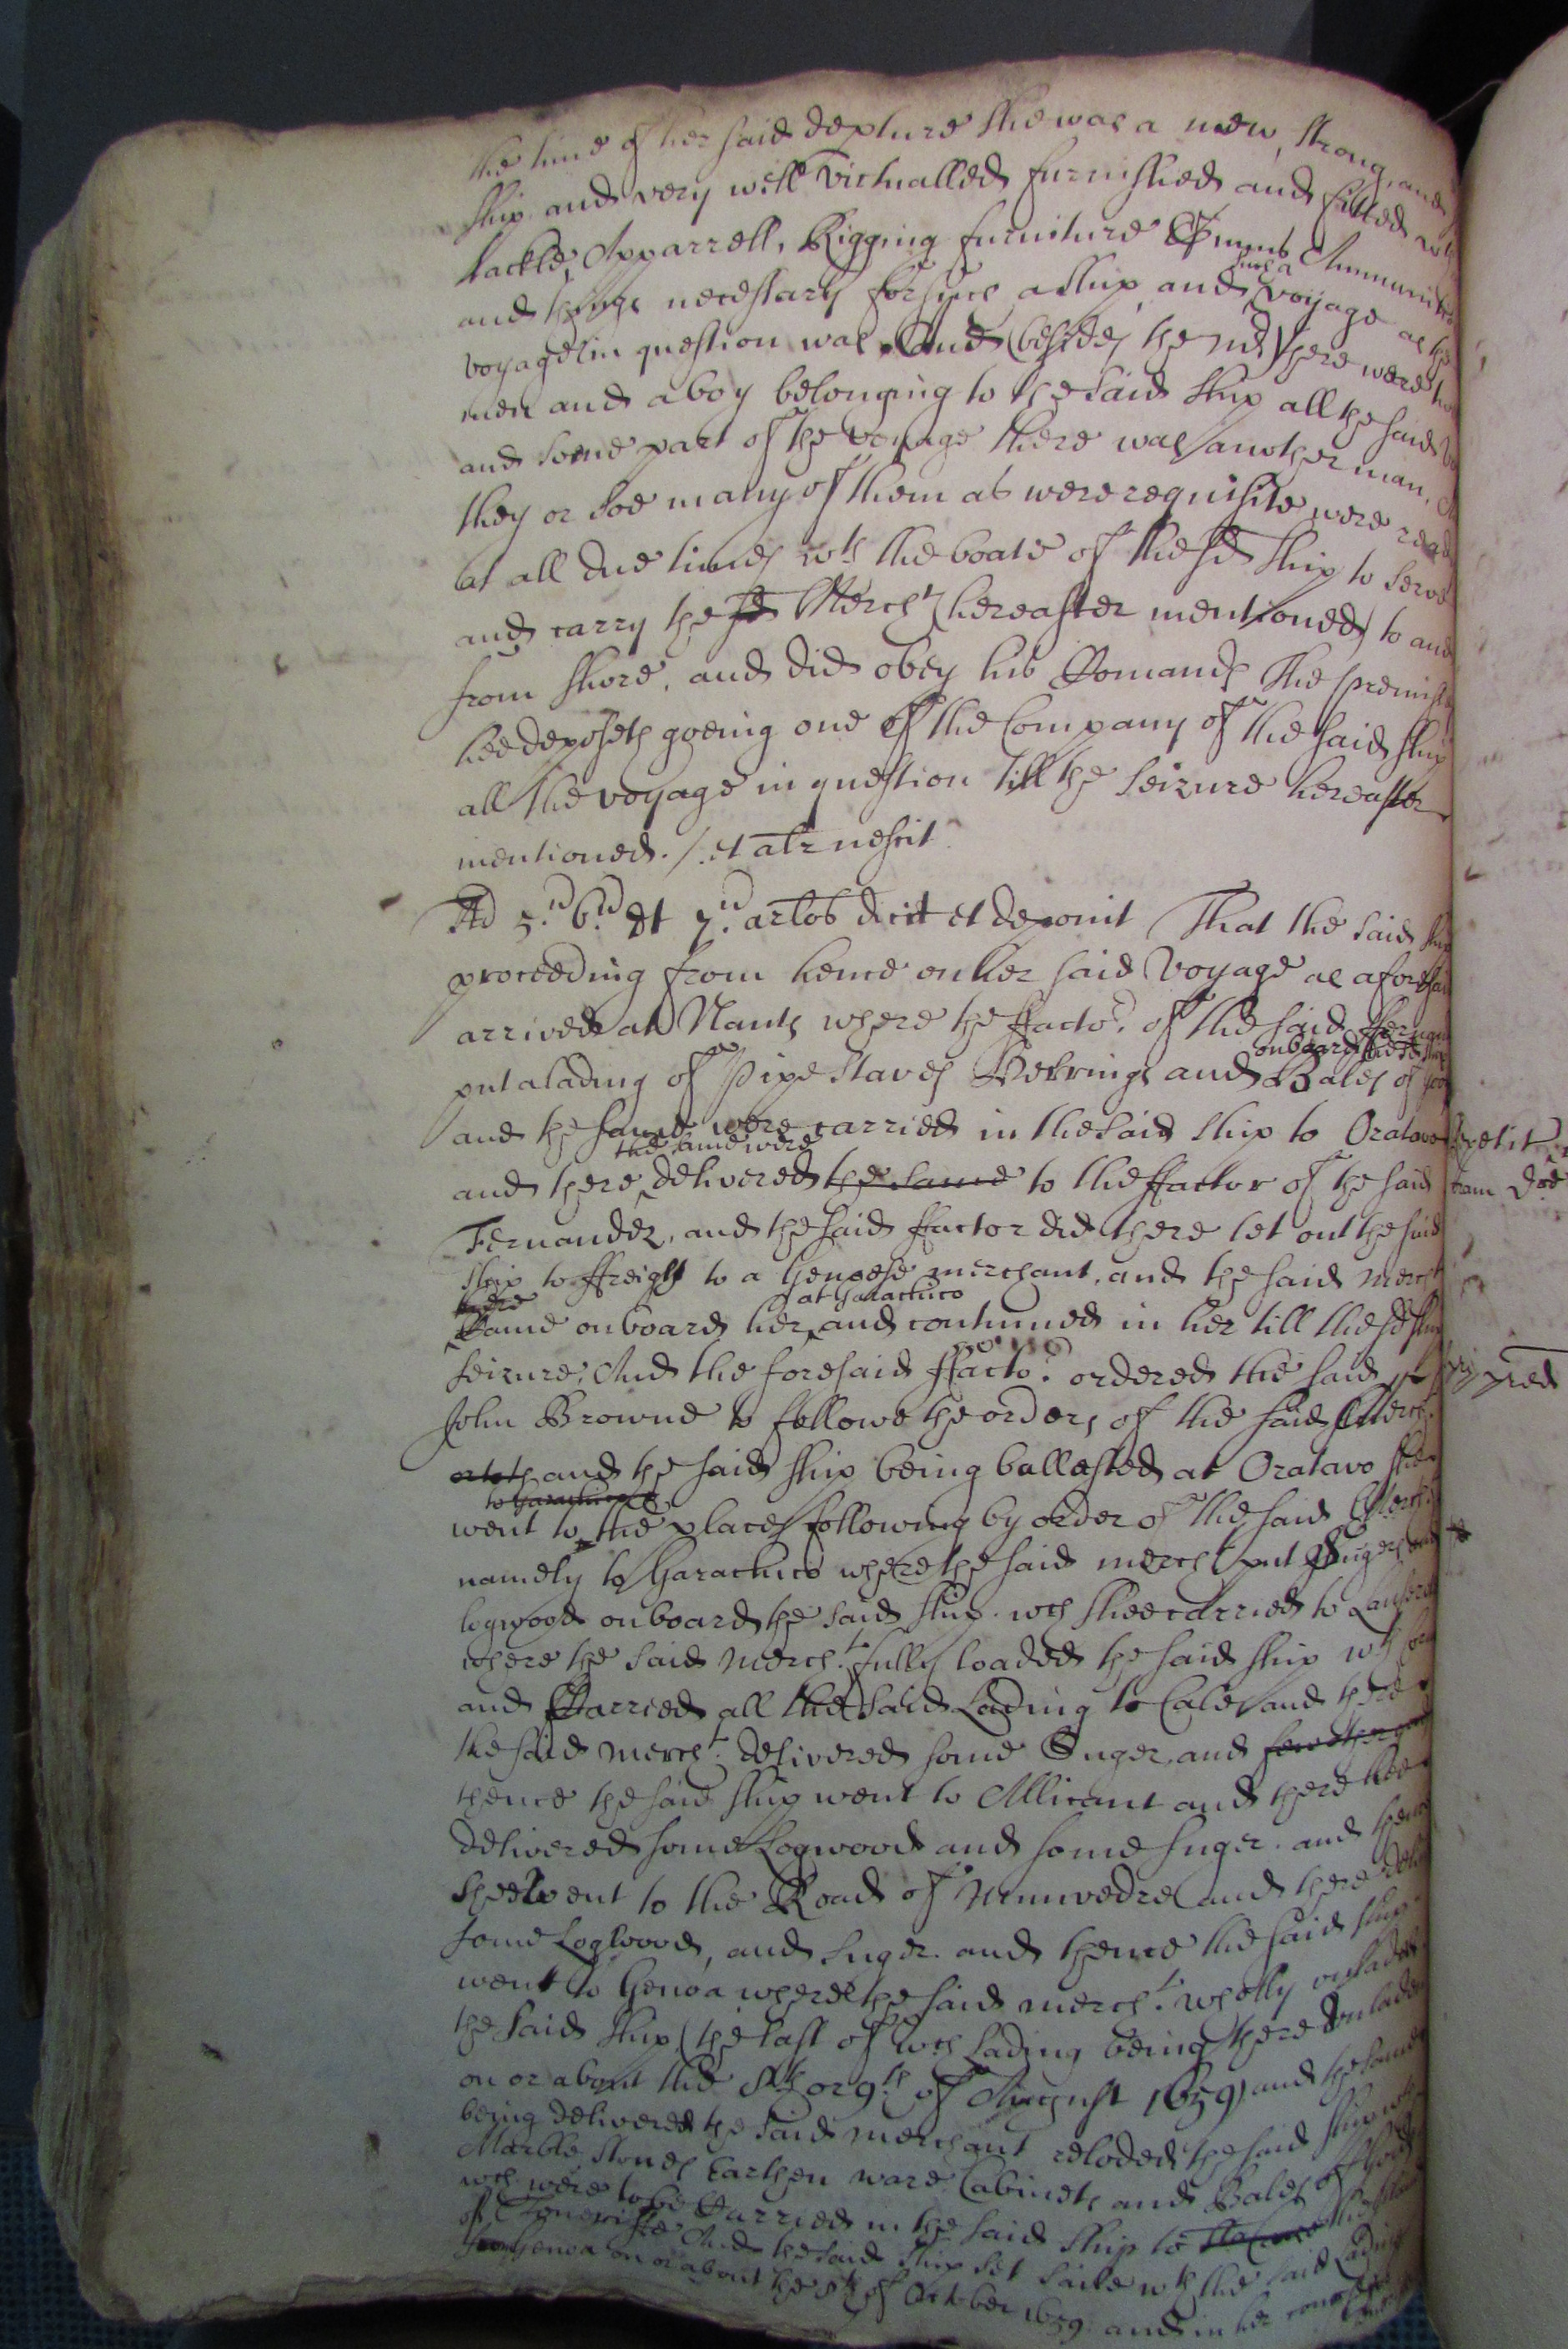 the time of her said depture shee was a new, strong, and
ship and very well victualled furnished and fitted wth
tackle, Apparrell, Rigging furniture Ammunition
and things necessary for such a ship, and such a voyage as the
voyage in question was. And (besides the md) there were two
men and a boy belonging to the said ship all the said
and some part of the voyage there was another man,
they or soe many of them as were requisite were ready
at all due times wth the boate of the sd ship to serve
and carry the sd Mercht (hereafter mentioned) to and
from shore, and did obey his Comands The premisses
hee deposeth goeing one of the Company of the said ship
all the voyage in question till the seizure hereafter
mentioned./. et alr nescit
Ad 5.ud 6.ud et 7.ud arlos dicit et deponit That the said ship
proceeding from hence on her said voyage as aforesaid
arrived at Nants where the ffactor. of the said
onboard the sd ship
put a lading of Pipe staves Herrings and Bales of
and the same were carried in the said ship to Oratavo
the same were
and there delivered the same to the ffactor of the said
Fernandez, and the said ffactor did there let out the said
ship to ffreight to a Genoese merchant, and the said mercht
at Garachico
Came onboard her, and continued in her till the sd ships
seizure, And the foresaid ffactor. ordered the said
John Browne to followe the orders of the said Mercht.
and the said ship being ballasted at Oratavo shee
to Garachico
went to the places following by order of the said Mercht.
namely to Garachico where the said mercht put Sugers and
logwood onboard the said ship. wch shee carried to
where the said mercht. fully loaded the said ship wth
and Carried all the said Lading to Cales and there
the said mercht. delivered some Suger, and
thence the said ship went to Allicant and there hee
delivered some Logwood and some suger. and thence
shee went to the Road of Munvedre and there
some Logwood, and suger. and thence the said ship
went to Genoa where the said mercht. wholly unladed
the said ship (the last of wch Lading being there unladen
on or about the 8th or 9th of August 1659) and the same
being delivered the said merchant reloded the said ship wth
Marble stones Earthen ware Cabinets and Bales of goods
wch were to be Carried in the said ship to
of Teneriffe And the said ship set saile wth the said Lading
from Genoa on or about the 8th of October 1659. and in her